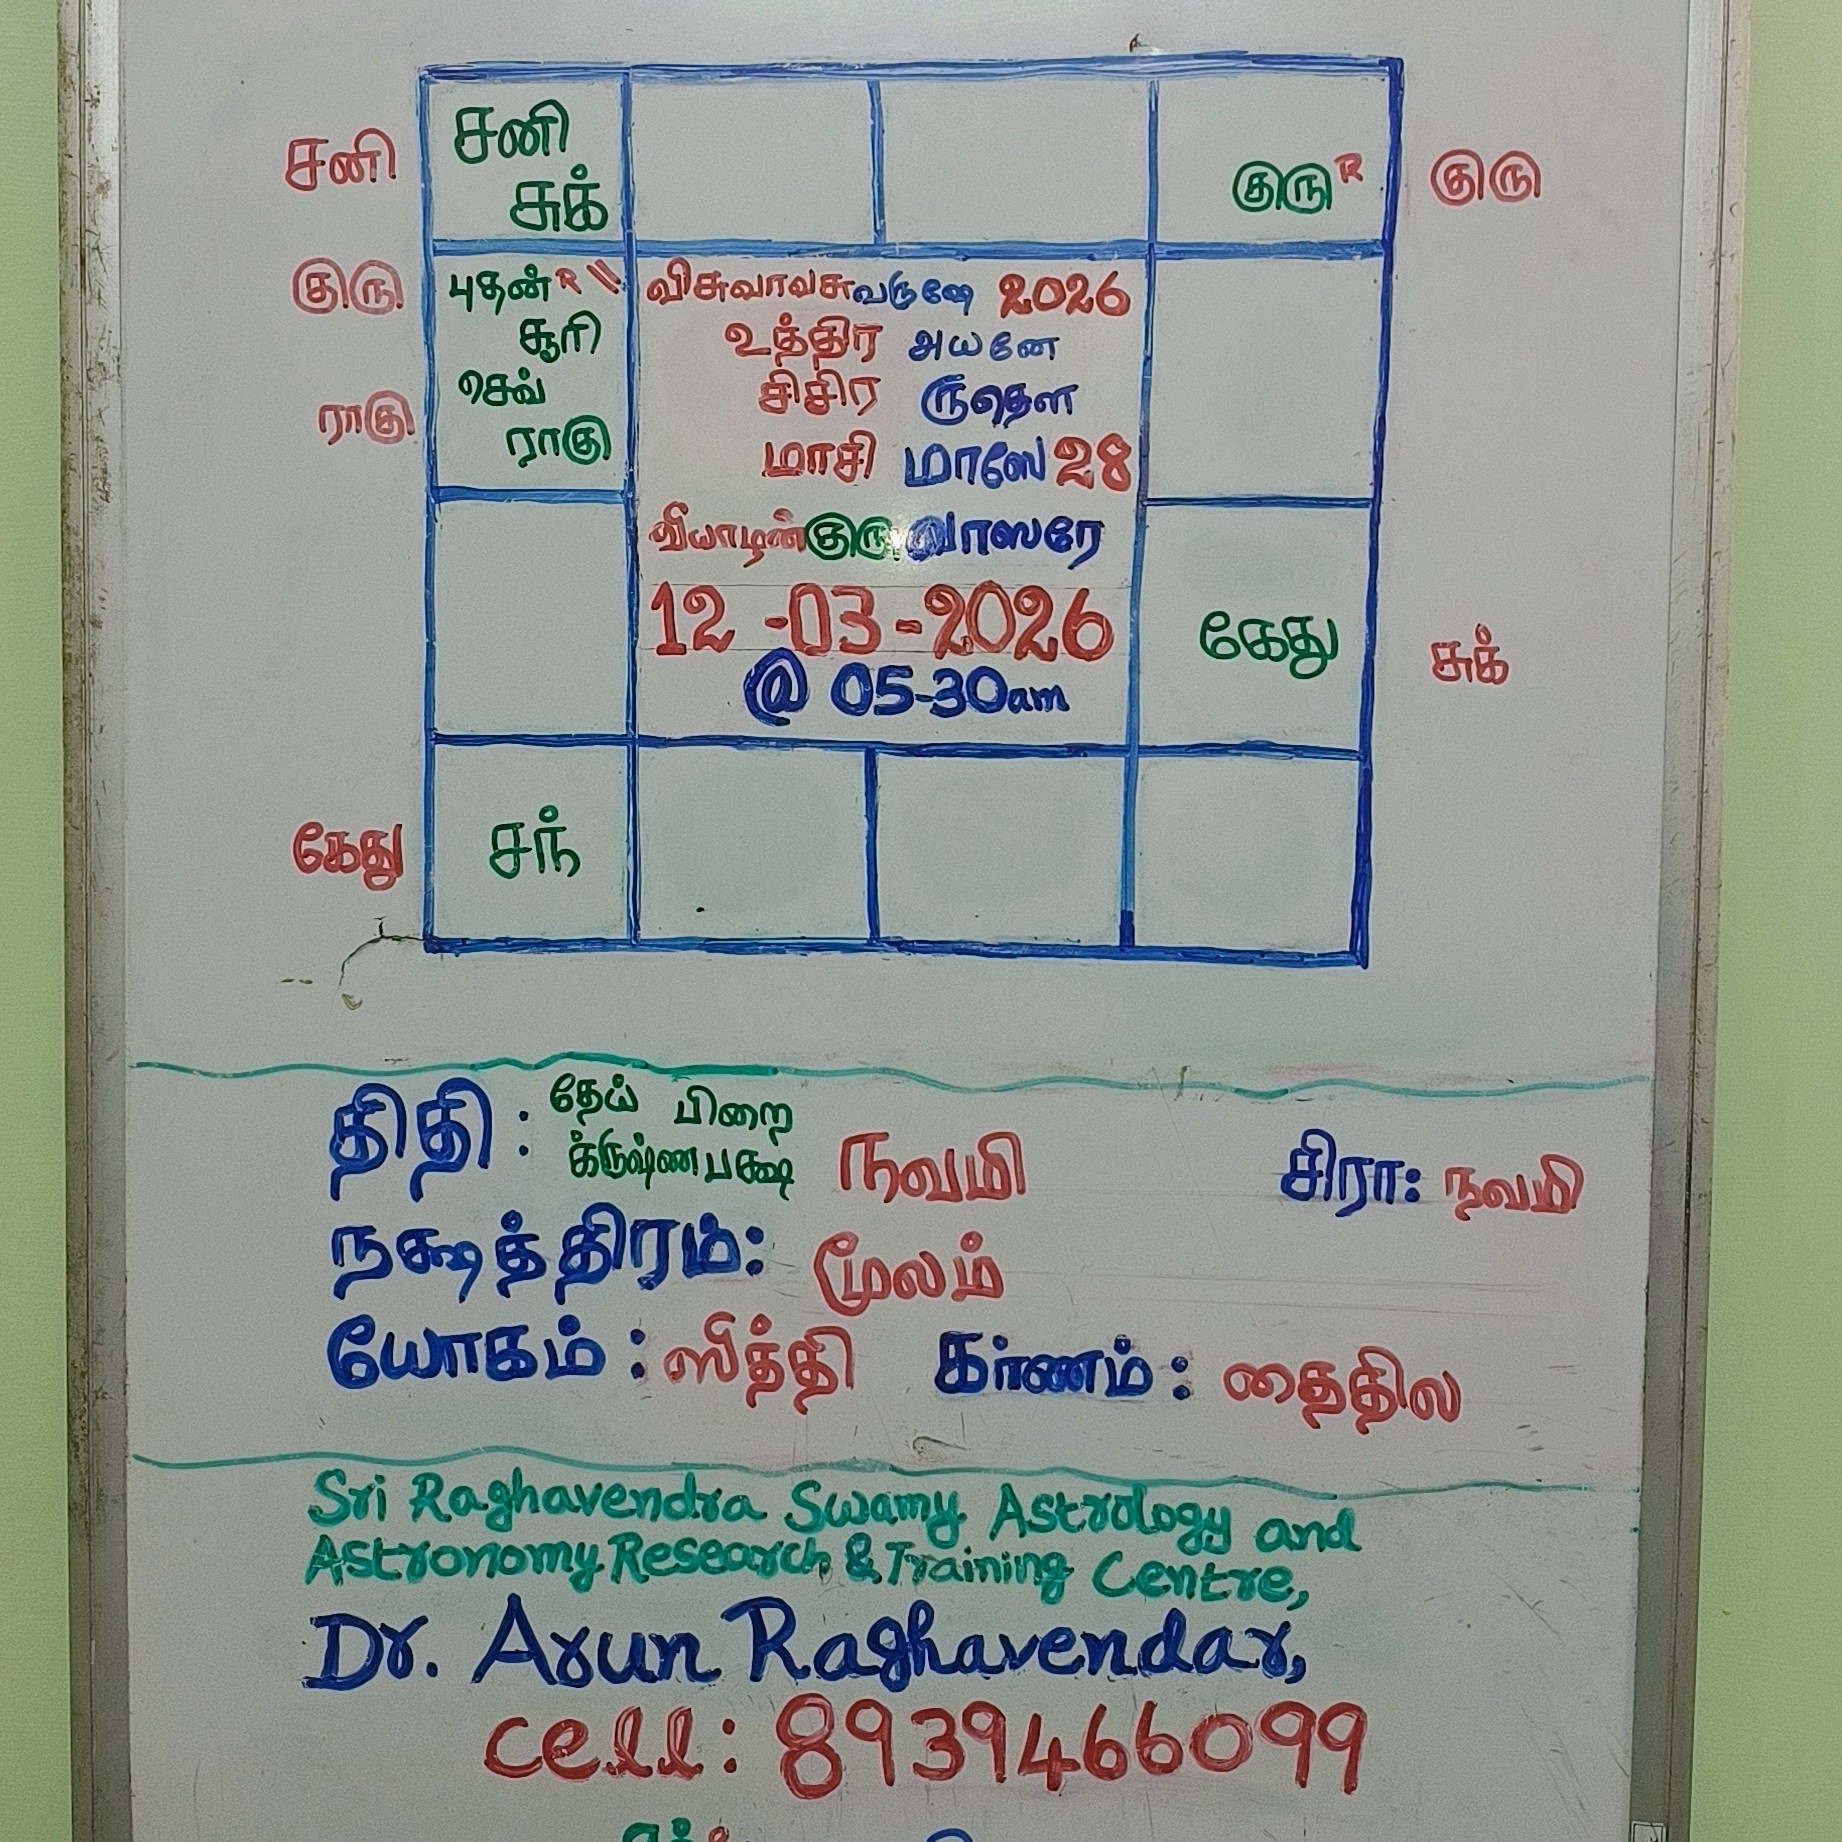 சனி
சுக்
குரு R
சனி
குரு
குரு
ராகு
புதன் R \\
சூரி
செவ்
ராகு
விசுவாவசு வருஷே 2026
உத்திர அயனே
சிசிர ருதௌ
மாசி மாஸே 28
வியாழன் குரு வாஸரே
12-03-2026
@ 05-30am
கேது
சுக்
கேது
சந்
திதி : தேய் பிறை
க்ருஷ்ணபக்ஷ நவமி சிரா: நவமி
நக்ஷத்திரம்: மூலம்
யோகம் : ஸித்தி கர்ணம் : தைதில
Sri Raghavendra Swamy Astrology and
Astronomy Research & Training Centre,
Dr. Arun Raghavendar,
cell: 8939466099